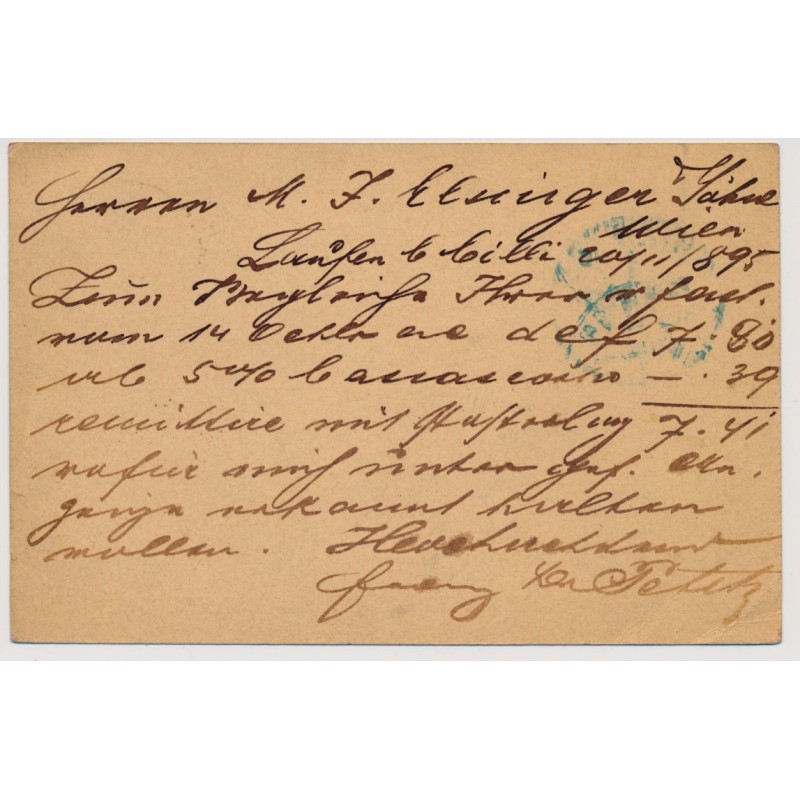 Herren M. J. Elsinger Söhne
Wien
Laufen b Cilli 20/11/895
Zum Begleiche Ihrer fact.
vom 14 Octbr de f 7.80
ab 5% Cassasconto —.39
remittire mit Postanlag 7.41
wofür mich unter gef. An-
zeige erkannt halten
wollen. Hochachtend
Franz Petek